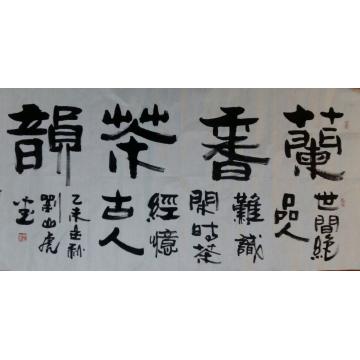 蘭香茶韻
世間絕
品人
難識
閑時茶
經憶
古人
乙未
劉山虎